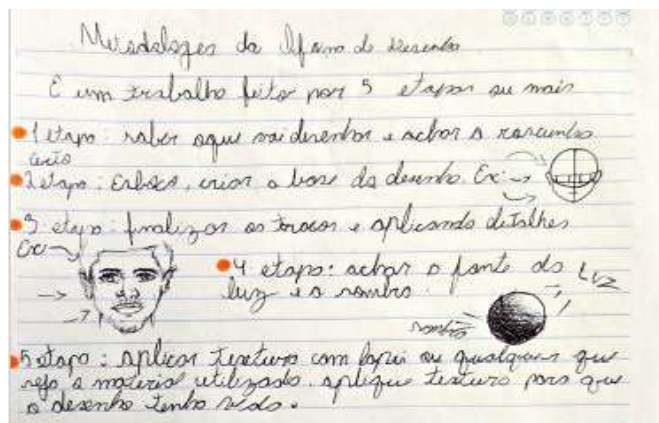 Metodologes da Oficina de desenho
E um trabalho feito por 5 etapas ou mais
1 etapa: saber oque vai desenhar e achar o rascunho
certo
2 etapa: Esboço, criar a base do desenho. Ex:
3 etapa: finalizar os traços e aplicando detalhes
Ex:
4 etapa: achar o fonte do
luz e a sombra.
LUZ
sombra
5 etapa: Aplicar textura com lapis ou qualquer que
seja o material utilizado. aplique textura para que
o desenho tenha vida.